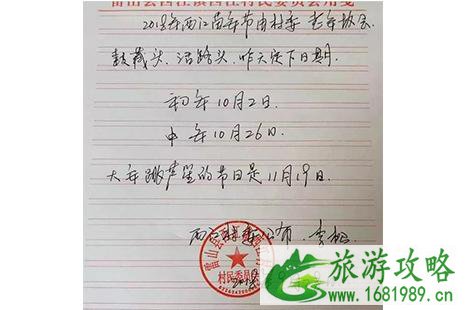 雷山县西江镇西江村民委员会用笺
2018年西江苗年节由村委 老年协会
鼓藏头、活路头、昨天定下日期.
初年10月2日.
中年10月26日.
大年跳芦笙的节日是11月19日.
西江村委公布
村民委员会
旅游攻略
www.1681989.cn